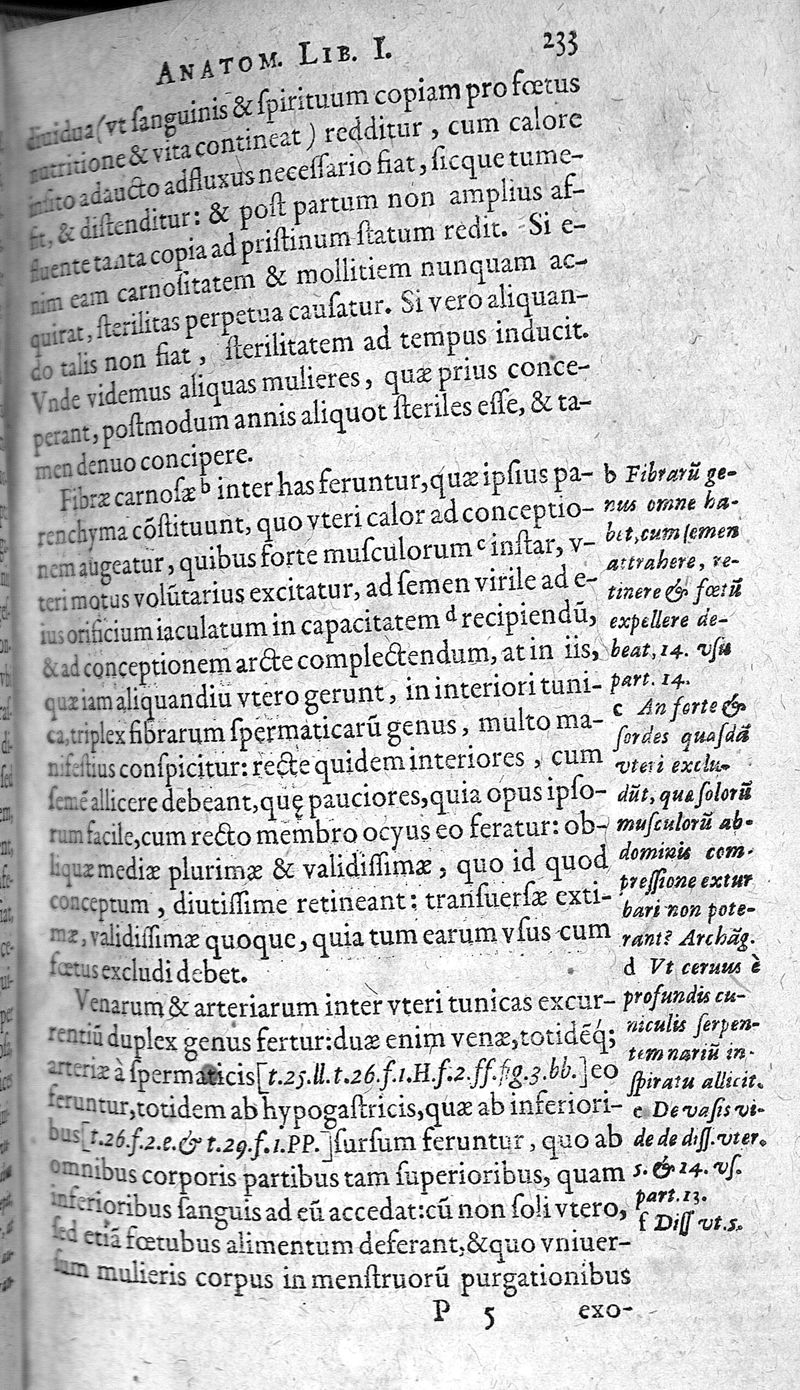 ANATOM. LIB. I. 233
diuidua (vt ſanguinis & ſpirituum copiam pro fœtus
nutritione & vita contineat) redditur, cum calore
inſito adaucto adfluxus neceſſario fiat, ſicque tume-
fit, & diſtenditur: & poſt partum non amplius af-
fluente tanta copia ad priſtinum ſtatum redit. Si e-
nim eam carnoſitatem & mollitiem nunquam ac-
quirat, ſterilitas perpetua cauſatur. Si vero aliquan-
do talis non fiat, ſterilitatem ad tempus inducit.
Vnde videmus aliquas mulieres, quæ prius conce-
perant, poſtmodum annis aliquot ſteriles eſſe, & ta-
men denuo concipere.
Fibræ carnoſæ b inter has feruntur, quæ ipſius pa-
renchyma cõſtituunt, quo vteri calor ad conceptio-
nem augeatur, quibus forte muſculorum c inſtar, v-
teri motus volũtarius excitatur, ad ſemen virile ad e-
ius orificium iaculatum in capacitatem d recipiendũ,
& ad conceptionem arcte complectendum, at in iis,
quæ iam aliquandiu vtero gerunt, in interiori tuni-
ca, triplex fibrarum ſpermaticarũ genus, multo ma-
nifeſtius conſpicitur: recte quidem interiores, cum
ſemẽ allicere debeant, quę pauciores, quia opus ipſo-
rum facile, cum recto membro ocyus eo feratur: ob-
liquæ mediæ plurimæ & validiſſimæ, quo id quod
conceptum, diutiſſime retineant: tranſuerſæ exti-
mæ, validiſſimæ quoque, quia tum earum vſus cum
fœtus excludi debet.
Venarum & arteriarum inter vteri tunicas excur-
rentiũ duplex genus fertur: duæ enim venæ, totidẽq;
arteriæ à ſpermaticis [t.25.ll.t.26.f.1.H.f.2.ff.fig.3.bb.] eo
feruntur, totidem ab hypogaſtricis, quæ ab inferiori-
bus [t.26.f.2.e.& t.29.f.1.PP.] ſurſum feruntur, quo ab
omnibus corporis partibus tam ſuperioribus, quam
inferioribus ſanguis ad eũ accedat: cũ non ſoli vtero,
ſed etiã fœtubus alimentum deferant, & quo vniuer-
ſum mulieris corpus in menſtruorũ purgationibus
P 5 exo-
b Fibrarũ ge-
nus omne ha-
bet, cum ſemen
attrahere, re-
tinere & fœtũ
expellere de-
beat, 14. vſu
part. 14.
c An forte &
ſordes quaſdã
vteri exclu-
dũt, quæ ſolorũ
muſculorũ ab-
dominis com-
preſſione extur
bari non pote-
rant? Archãg.
d Vt ceruus è
profundis cu-
niculis ſerpen-
tem nariũ in-
ſpiratu allicit.
e De vaſis vi-
de de diſſ. vter.
5. & 14. vſ.
part. 13.
f Diſſ vt. 5.